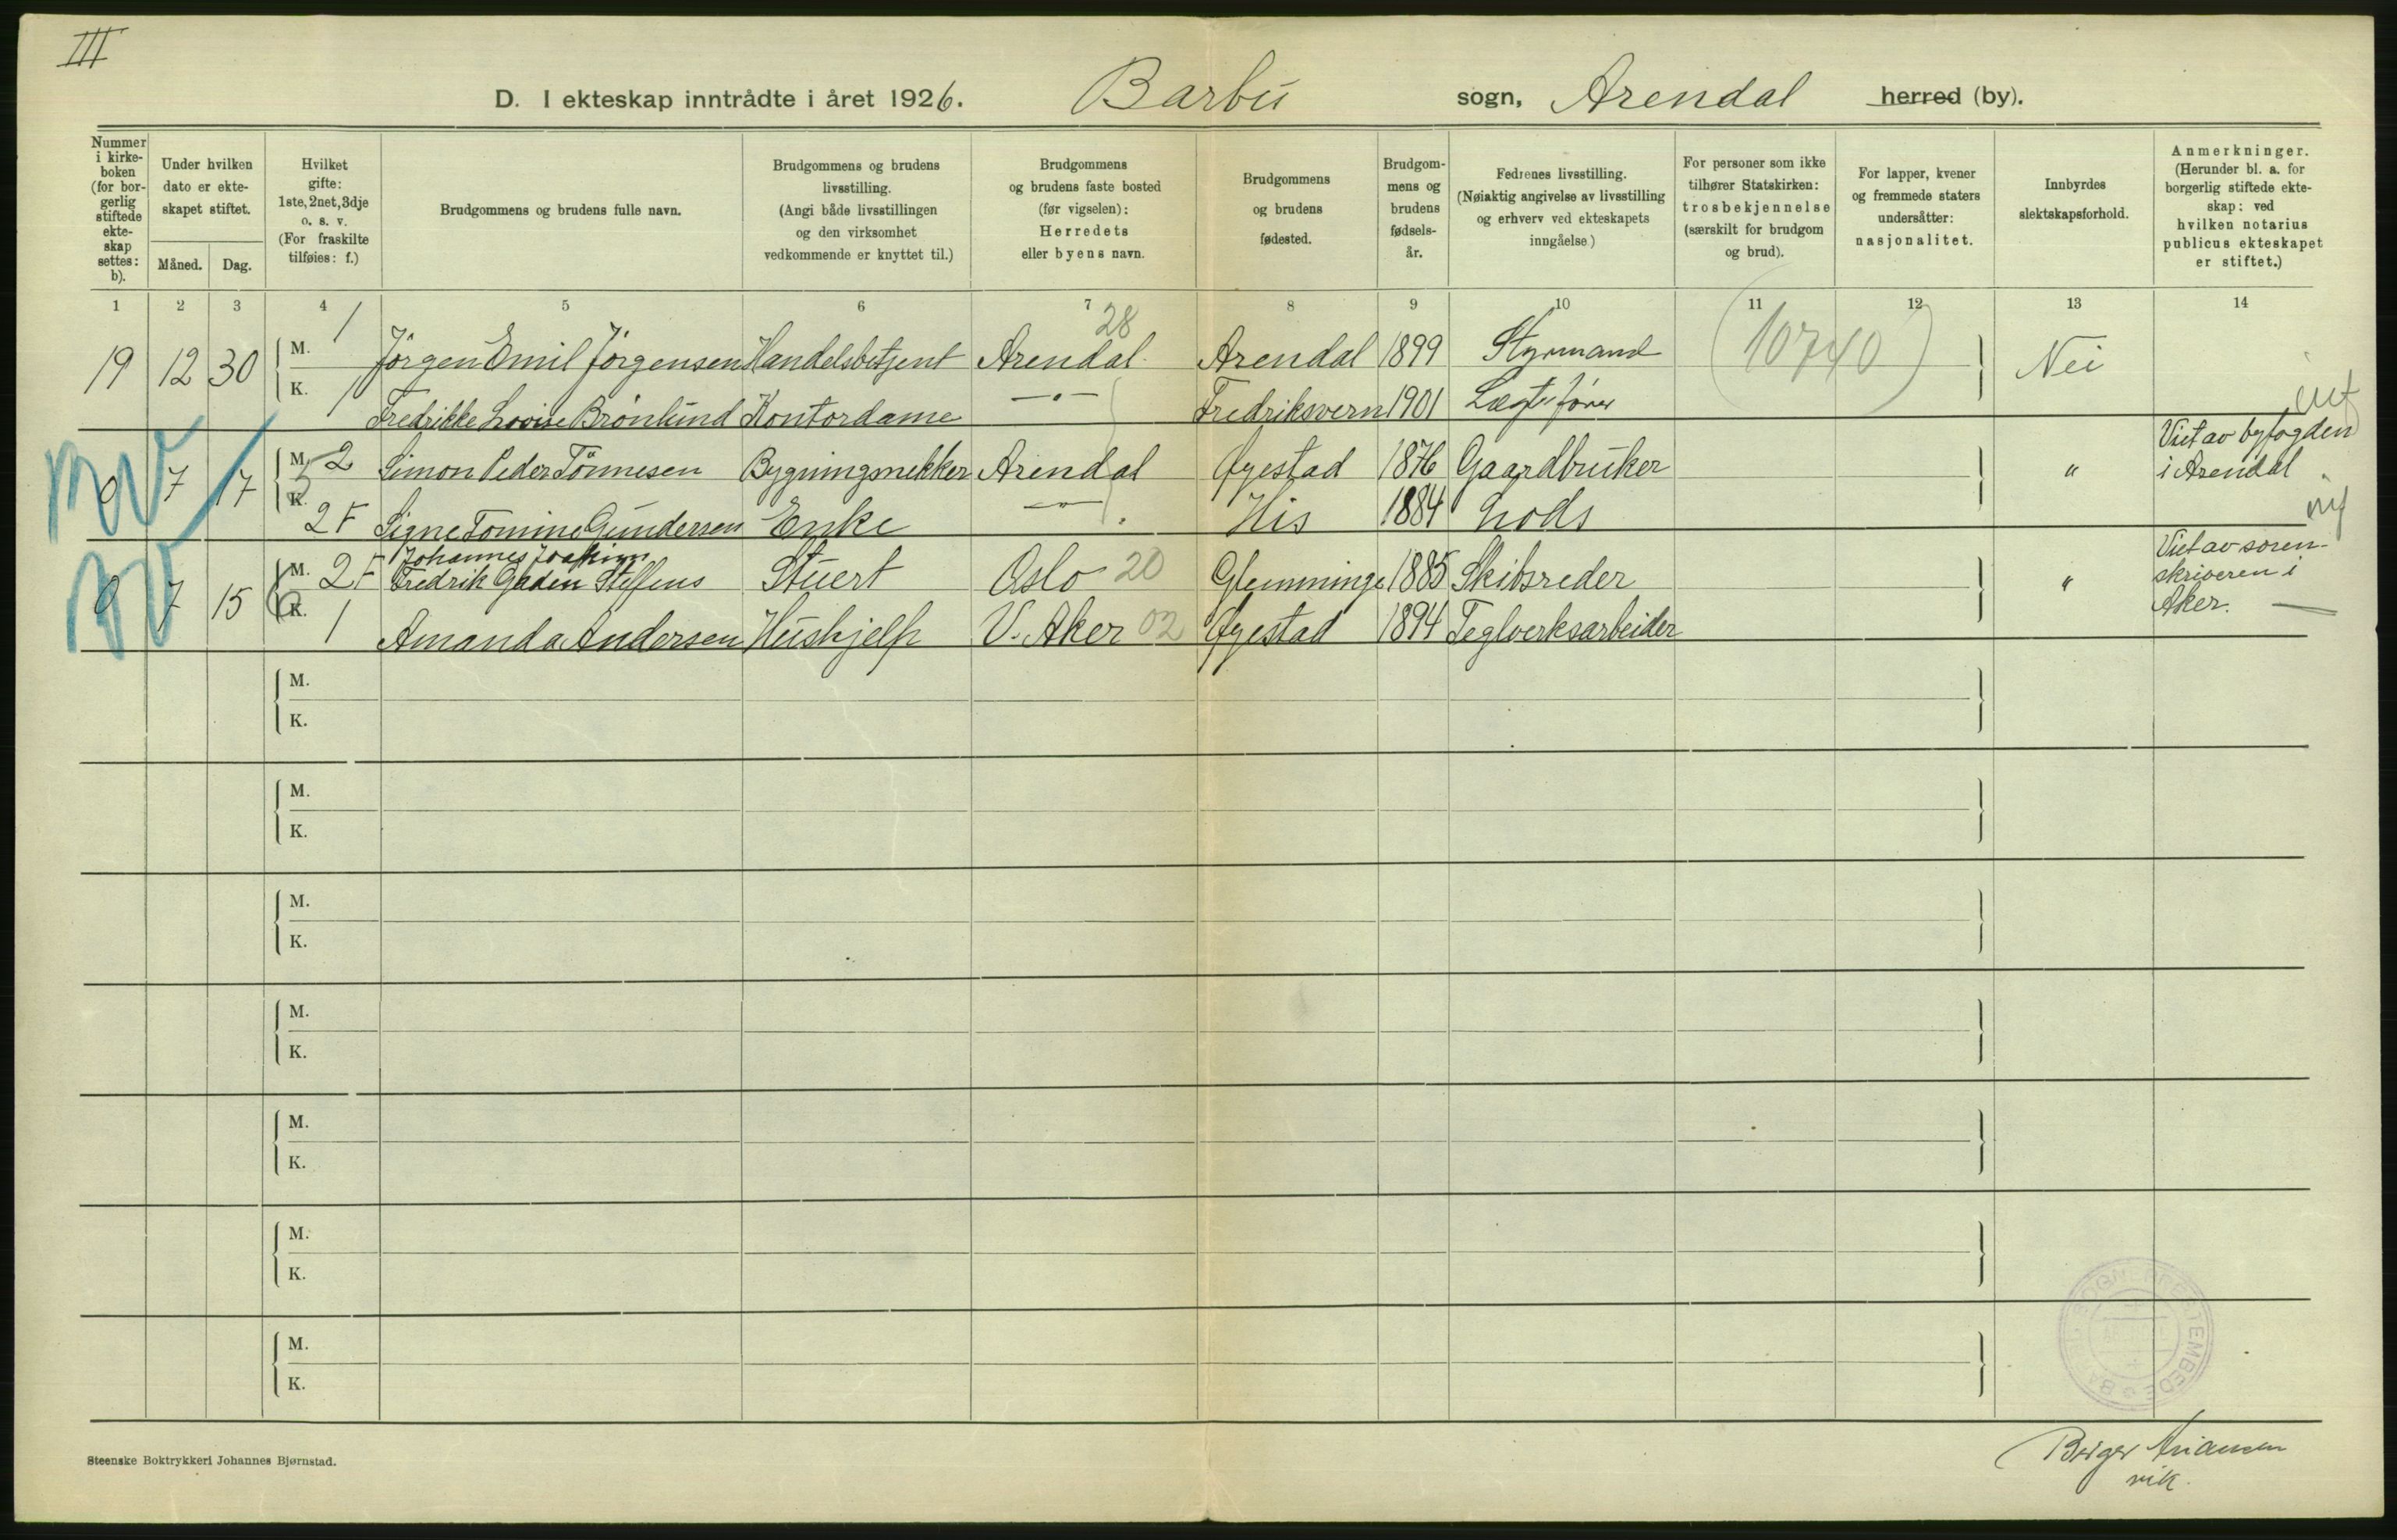 III
D. I ekteskap inntrådte i året 1926. Barbu sogn, Arendal herred (by).
Nummer i kirke-boken (for bor-gerlig stiftede ekte-skap settes: b).
Under hvilken dato er ekte-skapet stiftet.
Måned. Dag.
Hvilket gifte: 1ste, 2net, 3dje o. s. v. (For fraskilte tilføies: f.)
Brudgommens og brudens fulle navn.
Brudgommens og brudens livsstilling. (Angi både livsstillingen og den virksomhet vedkommende er knyttet til.)
Brudgommens og brudens faste bosted (før vigselen): Herredets eller byens navn.
Brudgommens og brudens fødested.
Brudgom-mens og brudens fødsels-år.
Fedrenes livsstilling. (Nøiaktig angivelse av livsstilling og erhverv ved ekteskapets inngåelse)
For personer som ikke tilhører Statskirken: trosbekjennelse (særskilt for brudgom og brud).
For lapper, kvener og fremmede staters undersåtter: nasjonalitet.
Innbyrdes slektskapsforhold.
Anmerkninger. (Herunder bl. a. for borgerlig stiftede ekte-skap: ved hvilken notarius publicus ekteskapet er stiftet.)
1 2 3 4 5 6 7 8 9 10 11 12 13 14
28
19 12 30 M. 1 Jörgen Emil Jörgensen Handelsbetjent Arendal. Arendal 1899 Styrmand (10740) Nei
K. 1 Fredrikke Lovise Brönlund Kontordame —"— Fredriksvern 1901
0 7 17 M. 2 Simon Peder Tönnesen Bygningsnekker Arendal Øyestad 1876 Gaardbruker " Viet av byfogden i Arendal
K. 2 F Signe Tomine Gundersen Enke —"— His 1884 Lods
0 7 15 M. 2 F Johannes Joakim Fredrik Gaden Steffens Stuert Oslo 20 Glemminge 1885 Skibsreder " Viet av soren-skriveren i Aker. —
K. 1 Amanda Andersen Hushjelp V. Aker 02 Øyestad 1894 Teglverksarbeider
M.
K.
M.
K.
M.
K.
M.
K.
M.
K.
M.
K.
M.
K.
Steenske Boktrykkeri Johannes Bjørnstad.
Birger
vik.